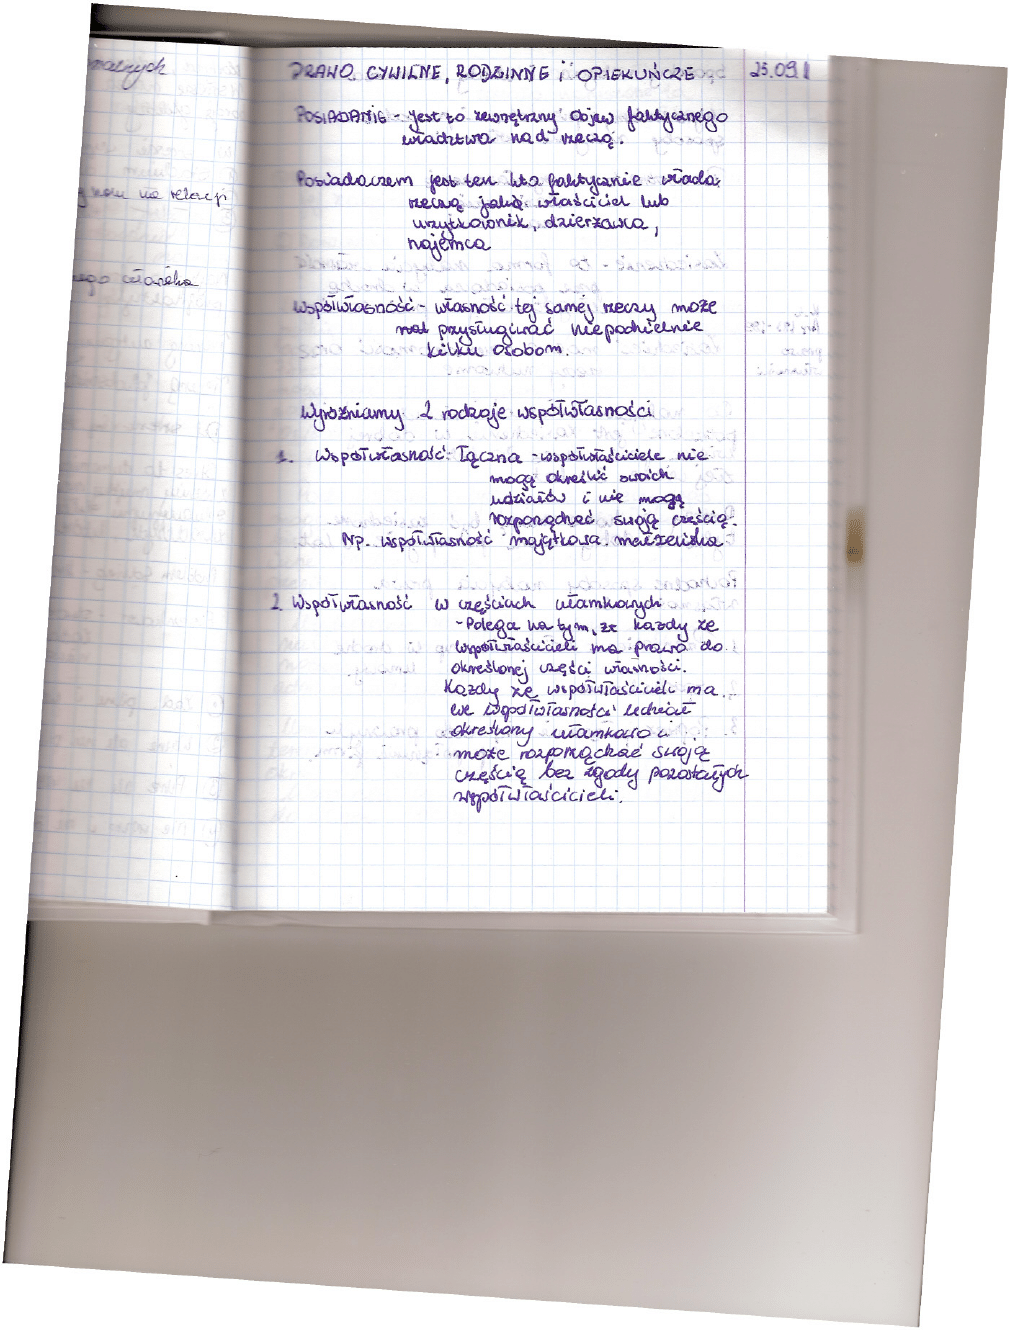 PRAWO CYWILNE, RODZINNE i OPIEKUŃCZE 25.09.
POSIADANIE - jest to zewnętrzny objaw faktycznego
władztwa nad rzeczą.
Posiadaczem jest ten kto faktycznie włada
rzeczą jako właściciel lub
użytkownik, dzierżawca,
najemca
Współwłasność - własność tej samej rzeczy może
przysługiwać niepodzielnie
kilku osobom.
Wyróżniamy 2 rodzaje współwłasności
1. Współwłasność łączna - współwłaściciele nie
mogą określić swoich
udziałów i nie mogą
rozporządzać swoją częścią.
Np. współwłasność majątkowa małżeńska
2. Współwłasność w częściach ułamkowych
- Polega na tym, że każdy ze
współwłaścicieli ma prawo do
określonej części własności.
Każdy ze współwłaścicieli ma
we współwłasności udział
określony ułamkowo i
może rozporządzać swoją
częścią bez zgody pozostałych
współwłaścicieli.